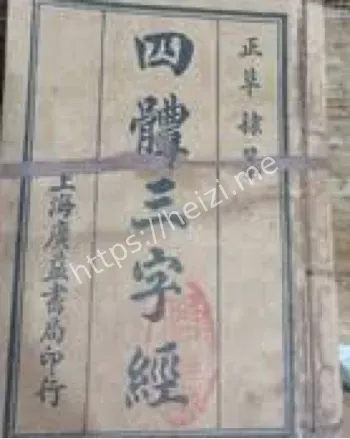 正草隸
四體三字經
上海廣益書局印行
https://heizi.me